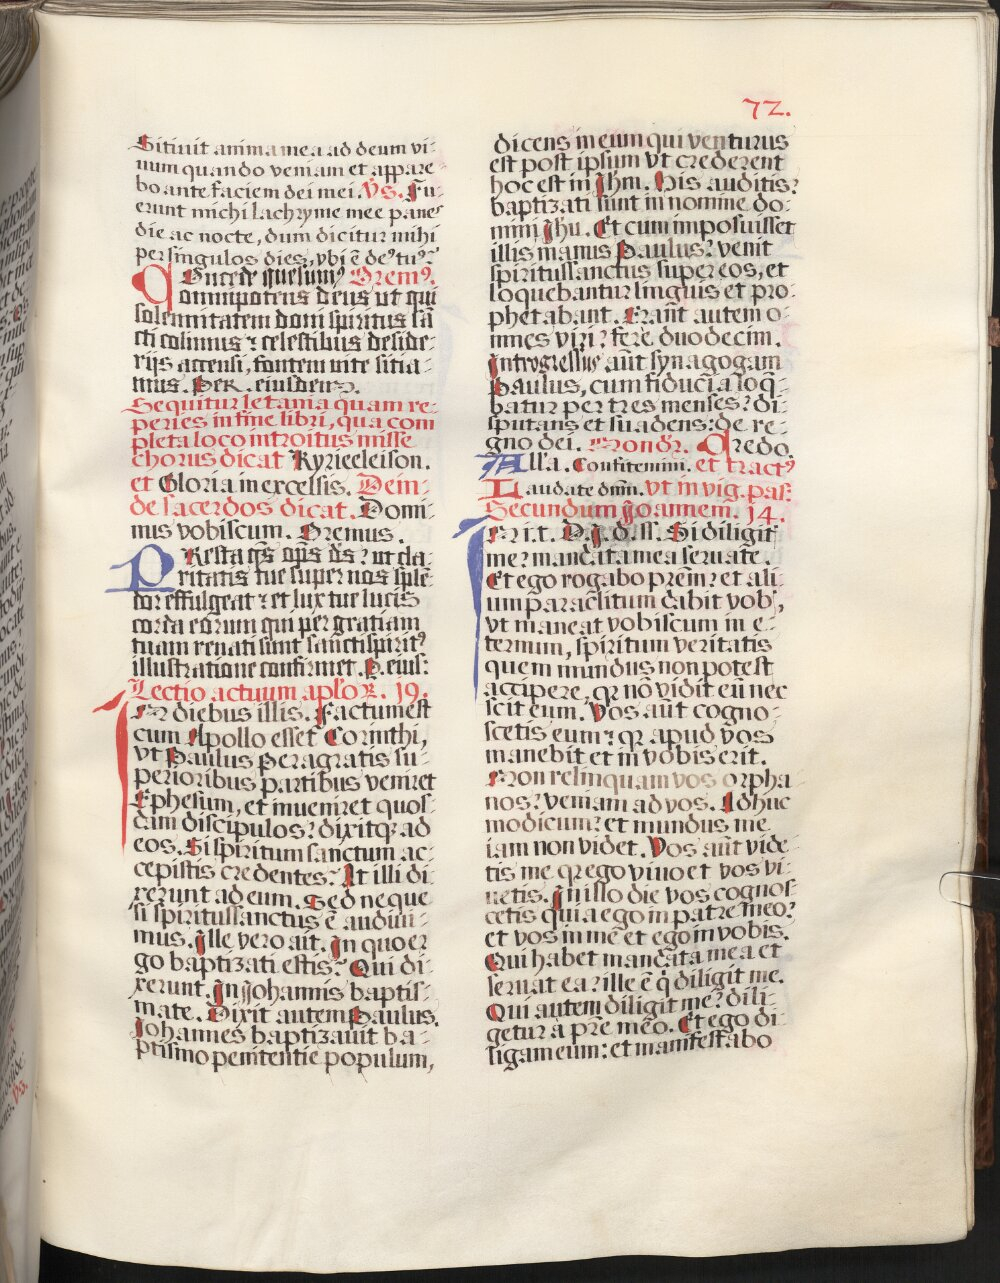 72.
Sitiuit anima mea ad deum vi-
uum quando veniam et appare
bo ante faciem dei mei. Vs. Fu-
erunt michi lachryme mee panes
die ac nocte, dum dicitur mihi
per singulos dies, vbi ē de⁹ tu⁹?
COncede quesum⁹ Orem⁹.
omnipotens deus ut qui
solennitatem doni spiritus sā
cti colimus ⁊ celestibus deside-
rijs accensi, fontem vite sitia-
mus. Per. eiusdem.
Sequitur letania quam re-
peries in fine libri, qua com
pleta loco introitus misse
chorus dicat Kyrieeleison.
et Gloria in excelsis. Dein-
de sacerdos dicat. Domi-
nus vobiscum. Oremus.
PResta q̄s ōps ds̄? ut cla-
ritatis tue super nos splē-
dor effulgeat ⁊ et lux tue lucis
corda eorum qui per gratiam
tuam renati sunt sancti spirit⁹
illustratione confirmet. P. eius:
Lectio actuum aploꝝ. 19.
IN diebus illis. Factum est
cum Apollo esset Corinthi,
vt Paulus peragratis su-
perioribus partibus veniret
Ephesum, et inueniret quos-
dam discipulos? dixitqꝫ ad
eos. Si spiritum sanctum ac-
cepistis credentes? At illi di-
xerunt ad eum. Sed neque
si spiritussanctus ē audiui-
mus. Ille vero ait. In quo er
go baptizati estis? Qui di-
xerunt. In Johannis baptis-
mate. Dixit autem Paulus.
Johannes baptizauit ba-
ptismo penitentie populum,
dicens in eum qui venturus
est post ipsum vt crederent
hoc est in Jhm. His auditis?
baptizati sunt in nomine do-
mini Jhu. Et cum imposuisset
illis manus Paulus? venit
spiritussanctus super eos, et
loquebantur linguis et pro-
phetabant. Erant autem o-
mnes viri? fere duodecim.
Introgressus aūt synagogam
Paulus, cum fiducia loq̄-
batur per tres menses? di-
sputans et suadens: de re-
gno dei. Non dr̄. Credo.
Alla. Confitemini. et tract⁹
Laudate dnm̄. vt in vig. pas:
Secundum Joannem. 14.
IN i. t. D. J. d. ss. Si diligit⁹
me? mandata mea seruate.
Et ego rogabo prēm? et ali-
um paraclitum dabit vob⁹,
vt maneat vobiscum in e-
ternum, spiritum veritatis
quem mundus non potest
accipere, qr nō vidit eū nec
scit eum. Vos aūt cogno-
scetis eum? qr apud vos
manebit et in vobis erit.
Non relinquam vos orpha
nos? veniam ad vos. Adhuc
modicum? et mundus me
iam non videt. Vos aūt vide-
tis me qr ego viuo et vos vi-
uetis. In illo die vos cognos-
cetis quia ego in patre meo?
et vos in me et ego in vobis.
Qui habet mandata mea et
seruat ea? ille ē q̄ diligit me.
Qui autem diligit me? dili-
getur a prē meo. Et ego di-
ligam eum: et manifestabo